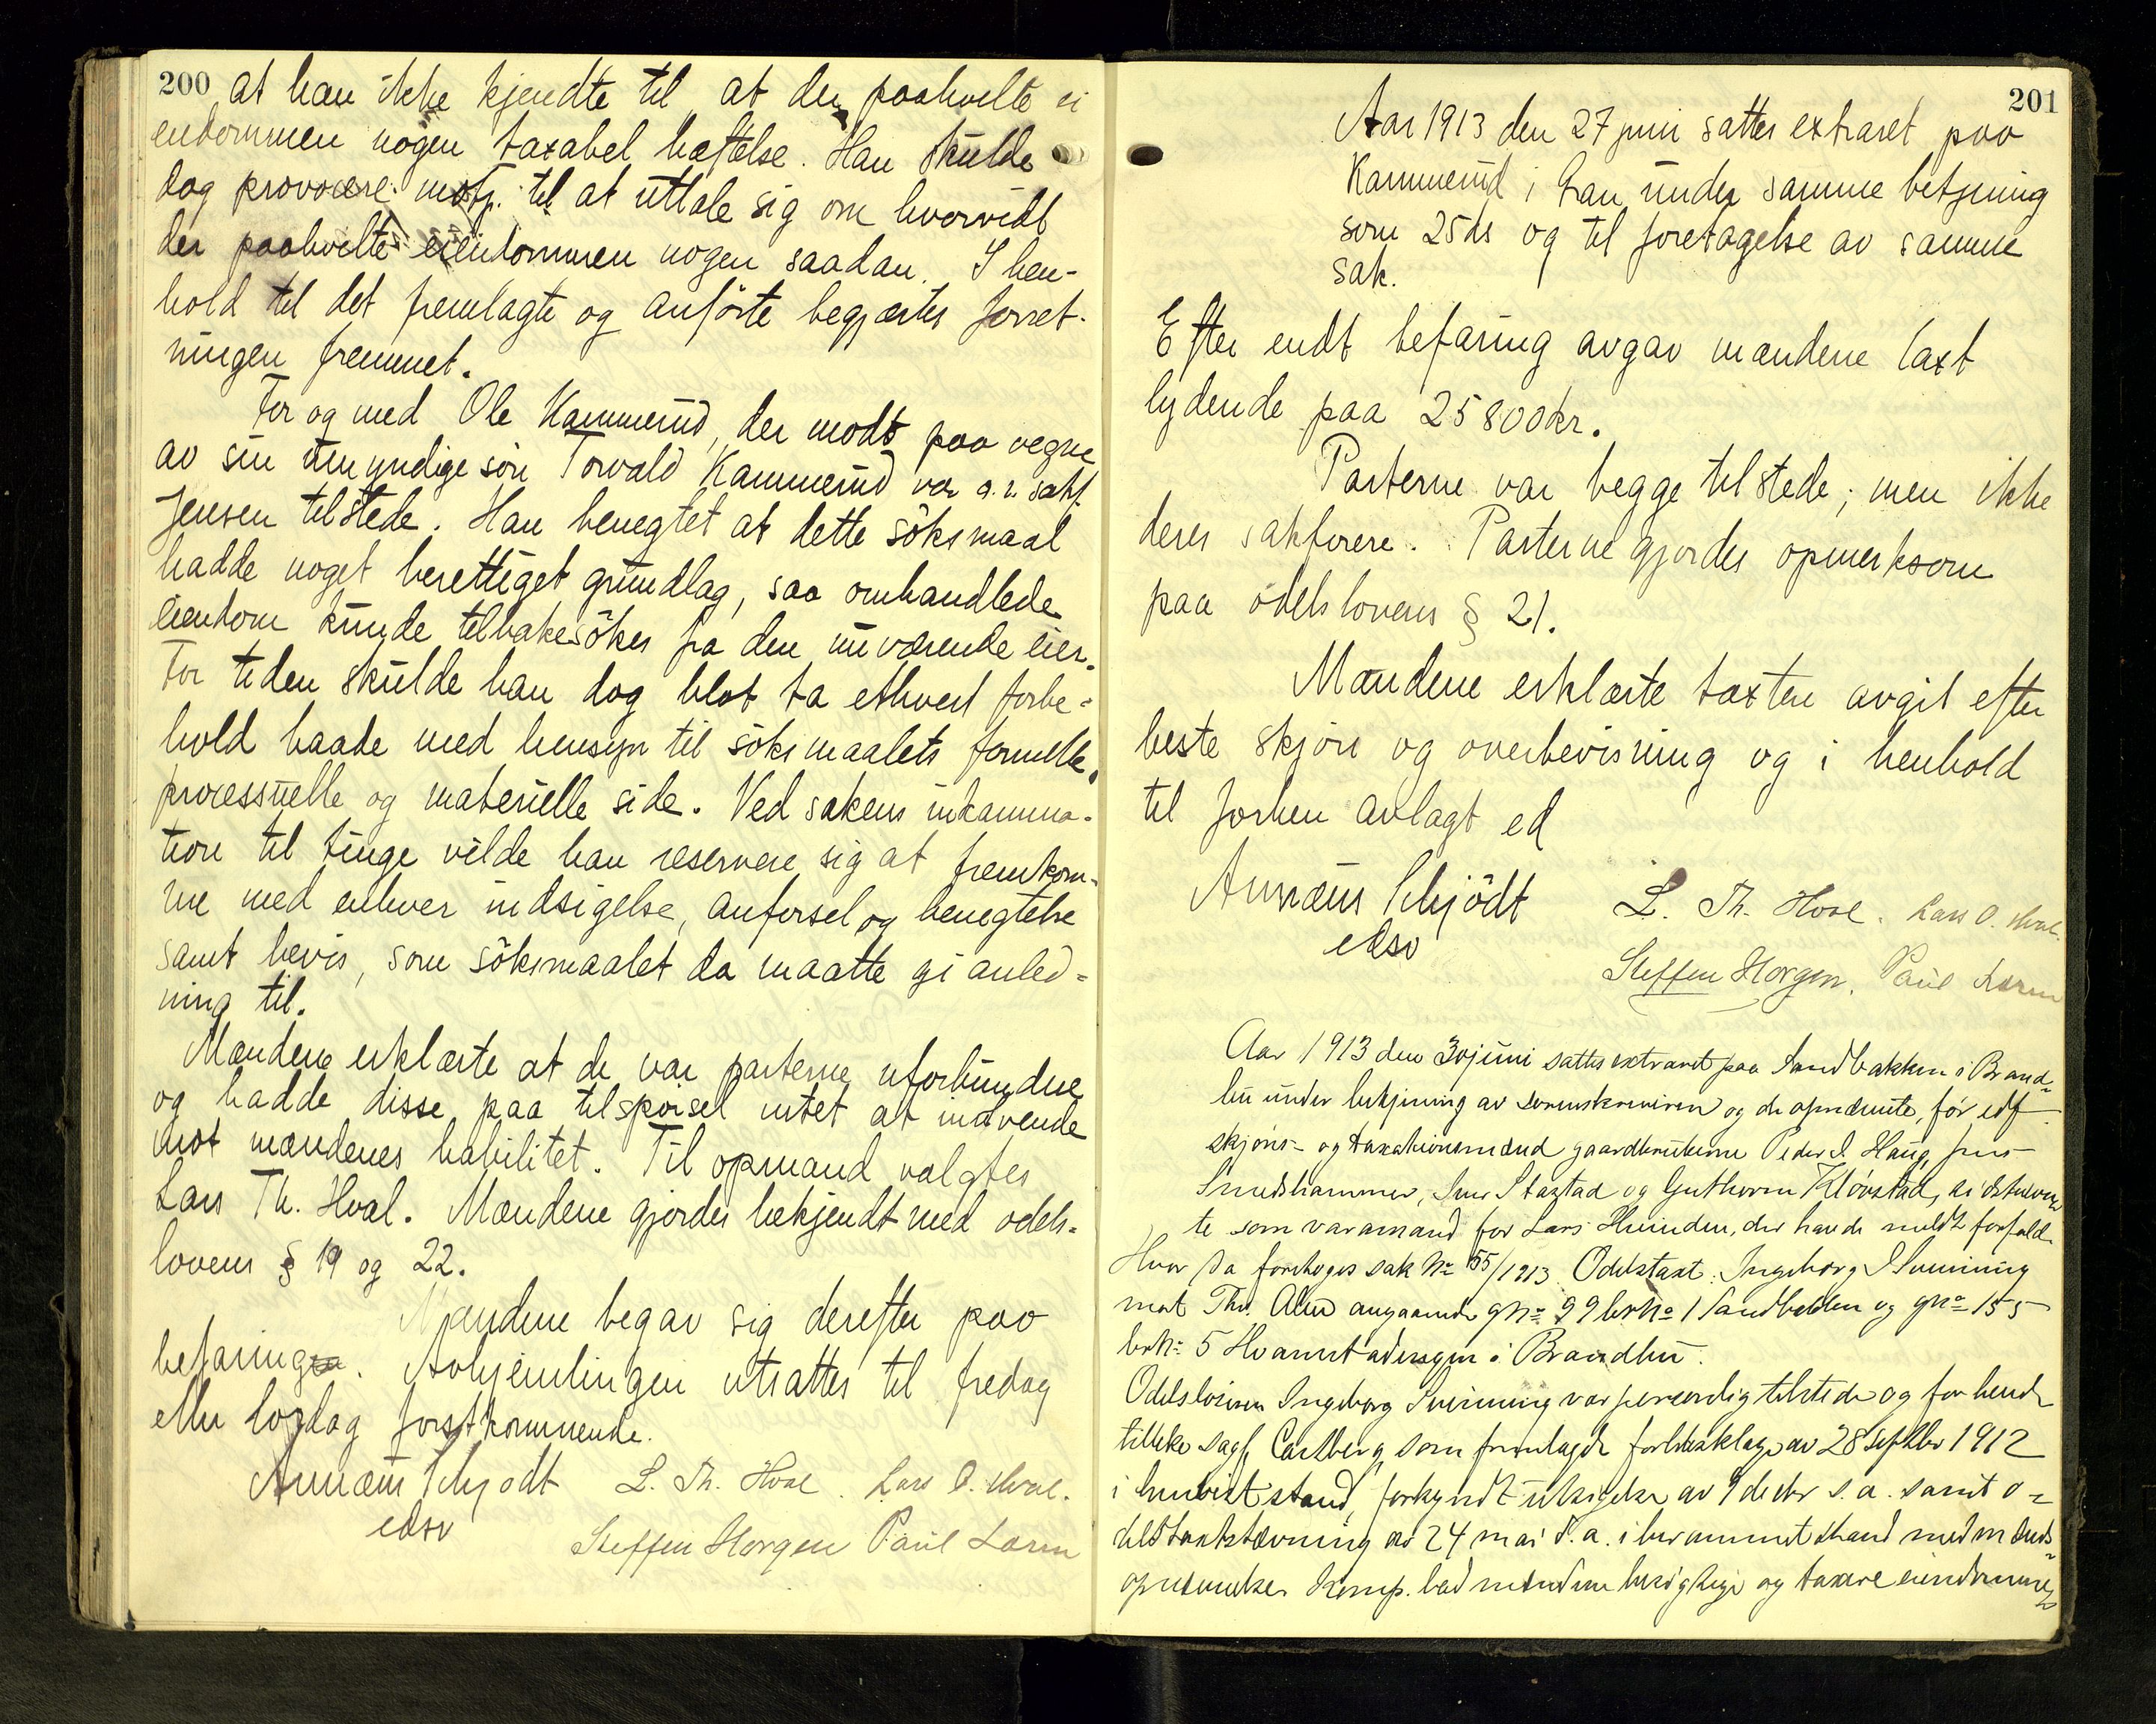 200 at han ikke kjendte til at der paahvilte ei
endommen nogen taxabel hæftelse. Han skulde
dog provocere motp. til at uttale sig om hvorvidt
der paahvilte eiendommen nogen saadan. I hen-
hold til det fremlagte og anførte begjærtes forret-
ningen fremmet.
For og med Ole Kammerud, der mødt paa vegne
av sin umyndige søn Torvald Kammerud var o.r. sakf.
Jensen tilstede. Han benegtet at dette søksmaal
hadde noget berettiget grundlag, saa omhandlede
eiendom kunde tilbakesøkes fra den nuværende eier.
For tiden skulde han dog blot ta ethvert forbe-
hold baade med hensyn til søksmaalets formelle,
processuelle og materielle side. Ved sakens inkamma-
tion til tinge vilde han reservere sig at fremkom-
me med enhver indsigelse, anførsel og benegtelse
samt bevis, som søksmaalet da maatte gi anled-
ning til.
Mændene erklærte at de var parterne uforbundne
og hadde disse paa tilspørsel intet at indvende
mot mændenes habilitet. Til opmand valgtes
Lars Th. Hval. Mændene gjordes bekjendt med odels-
lovens § 19 og 22.
Mændene begav sig derefter paa
befaring. Avhjemlingen utsattes til fredag
eller lørdag førstkommende.
Annæus Schjødt L. Th. Hval. Lars O. Hval.
edsv Steffen Horgen Paul Lorm
201
Aar 1913 den 27 juni sattes extraret paa
Kammerud i Gran under samme betjening
som 25ds og til foretagelse av samme
sak.
Efter endt befaring avgav mændene taxt
lydende paa 25800kr.
Parterne var begge tilstede; men ikke
deres sakførere. Parterne gjordes opmerksom
paa odelslovens § 21.
Mændene erklærte taxten avgit efter
beste skjøn og overbevisning og i henhold
til forhen avlagt ed
Annæus Schjødt L. Th. Hval. Lars O. Hval.
edsv Steffen Horgen. Paul Lorm
Aar 1913 den 30 juni sattes extraret paa Sandbakken i Brand-
bu under betjening av sorenskriveren og de opnævnte, før edf
skjøns- og taxationsmænd gaardbrukerne Peder I. Haug, Jens
Smedshammer, Iver Staxtad og Guthorm Kløvstad, sidstnævn
te som varamand for Lars Hvinden, der havde meldt forfald.
Hvor da foretoges sak No 55/1913 Odelstaxt: Ingeborg I Svinning
mot Thv. Alm angaaende gno 99 brno 1 Sandbakken og gno 155
brn. 5 Hvamstadengen i Brandbu.
Odelsløseren Ingeborg Svinning var personlig tilstede og for hende
tillike sagf. Carlberg, som fremlagde forliksklage av 28 septbr 1912
i henvist stand, forkyndt utsigelse av 9 decbr s.a. samt o-
delstaxtstævning av 24 mai d.a. i berammet stand med mænds-
opnævnelse. Komp. bad mændene besigtige og taxere eiendommene